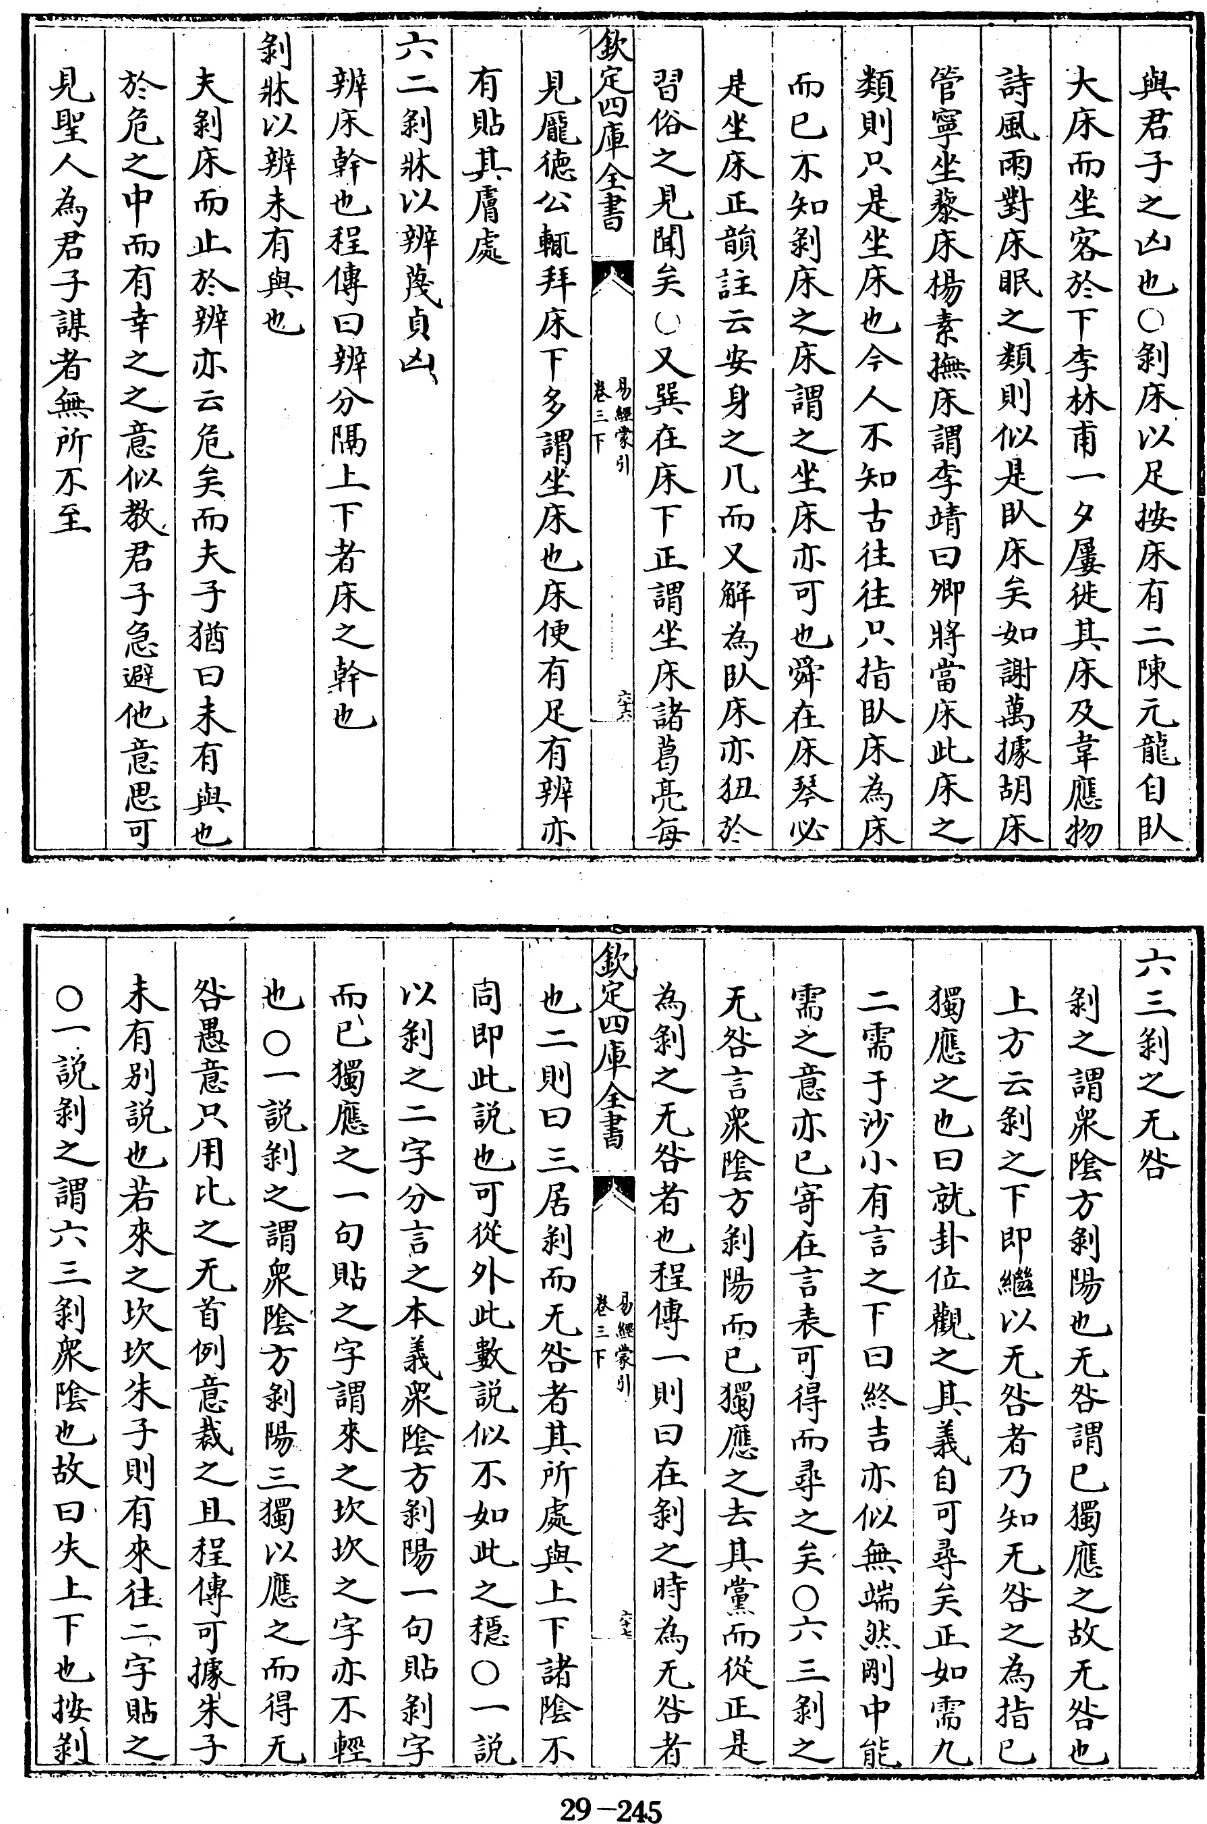 與君子之凶也○剝床以足按床有二陳元龍自臥
大床而坐客於下李林甫一夕屢徙其床及韋應物
詩風雨對床眠之類則似是臥床矣如謝萬據胡床
管寧坐藜床楊素撫床謂李靖曰卿將當床此床之
類則只是坐床也今人不知古往往只指臥床為床
而已不知剝床之床謂之坐床亦可也舜在床琴必
是坐床正韻註云安身之几而又解為臥床亦狃於
習俗之見聞矣○又巽在床下正謂坐床諸葛亮每
欽定四庫全書
易經蒙引
卷三下
六十六
見龎德公輒拜床下多謂坐床也床便有足有辨亦
有貼其膚處
六二剝牀以辨蔑貞凶
辨床幹也程傳曰辨分隔上下者床之幹也
剝牀以辨未有與也
夫剝床而止於辨亦云危矣而夫子猶曰未有與也
於危之中而有幸之之意似教君子急避他意思可
見聖人為君子謀者無所不至
六三剝之无咎
剝之謂衆陰方剝陽也无咎謂已獨應之故无咎也
上方云剝之下即繼以无咎者乃知无咎之為指已
獨應之也曰就卦位觀之其義自可尋矣正如需九
二需于沙小有言之下曰終吉亦似無端然剛中能
需之意亦已寄在言表可得而尋之矣○六三剝之
无咎言衆陰方剝陽而已獨應之去其黨而從正是
為剝之无咎者也程傳一則曰在剝之時為无咎者
欽定四庫全書
易經蒙引
卷三下
六十七
也二則曰三居剝而无咎者其所處與上下諸陰不
同即此說也可從外此數說似不如此之穩○一說
以剝之二字分言之本義衆陰方剝陽一句貼剝字
而已獨應之一句貼之字謂來之坎坎之字亦不輕
也○一說剝之謂衆陰方剝陽三獨以應之而得无
咎愚意只用比之无首例意裁之且程傳可據朱子
未有別說也若來之坎坎朱子則有來往二字貼之
○一說剝之謂六三剝衆陰也故曰失上下也按剝
29-245